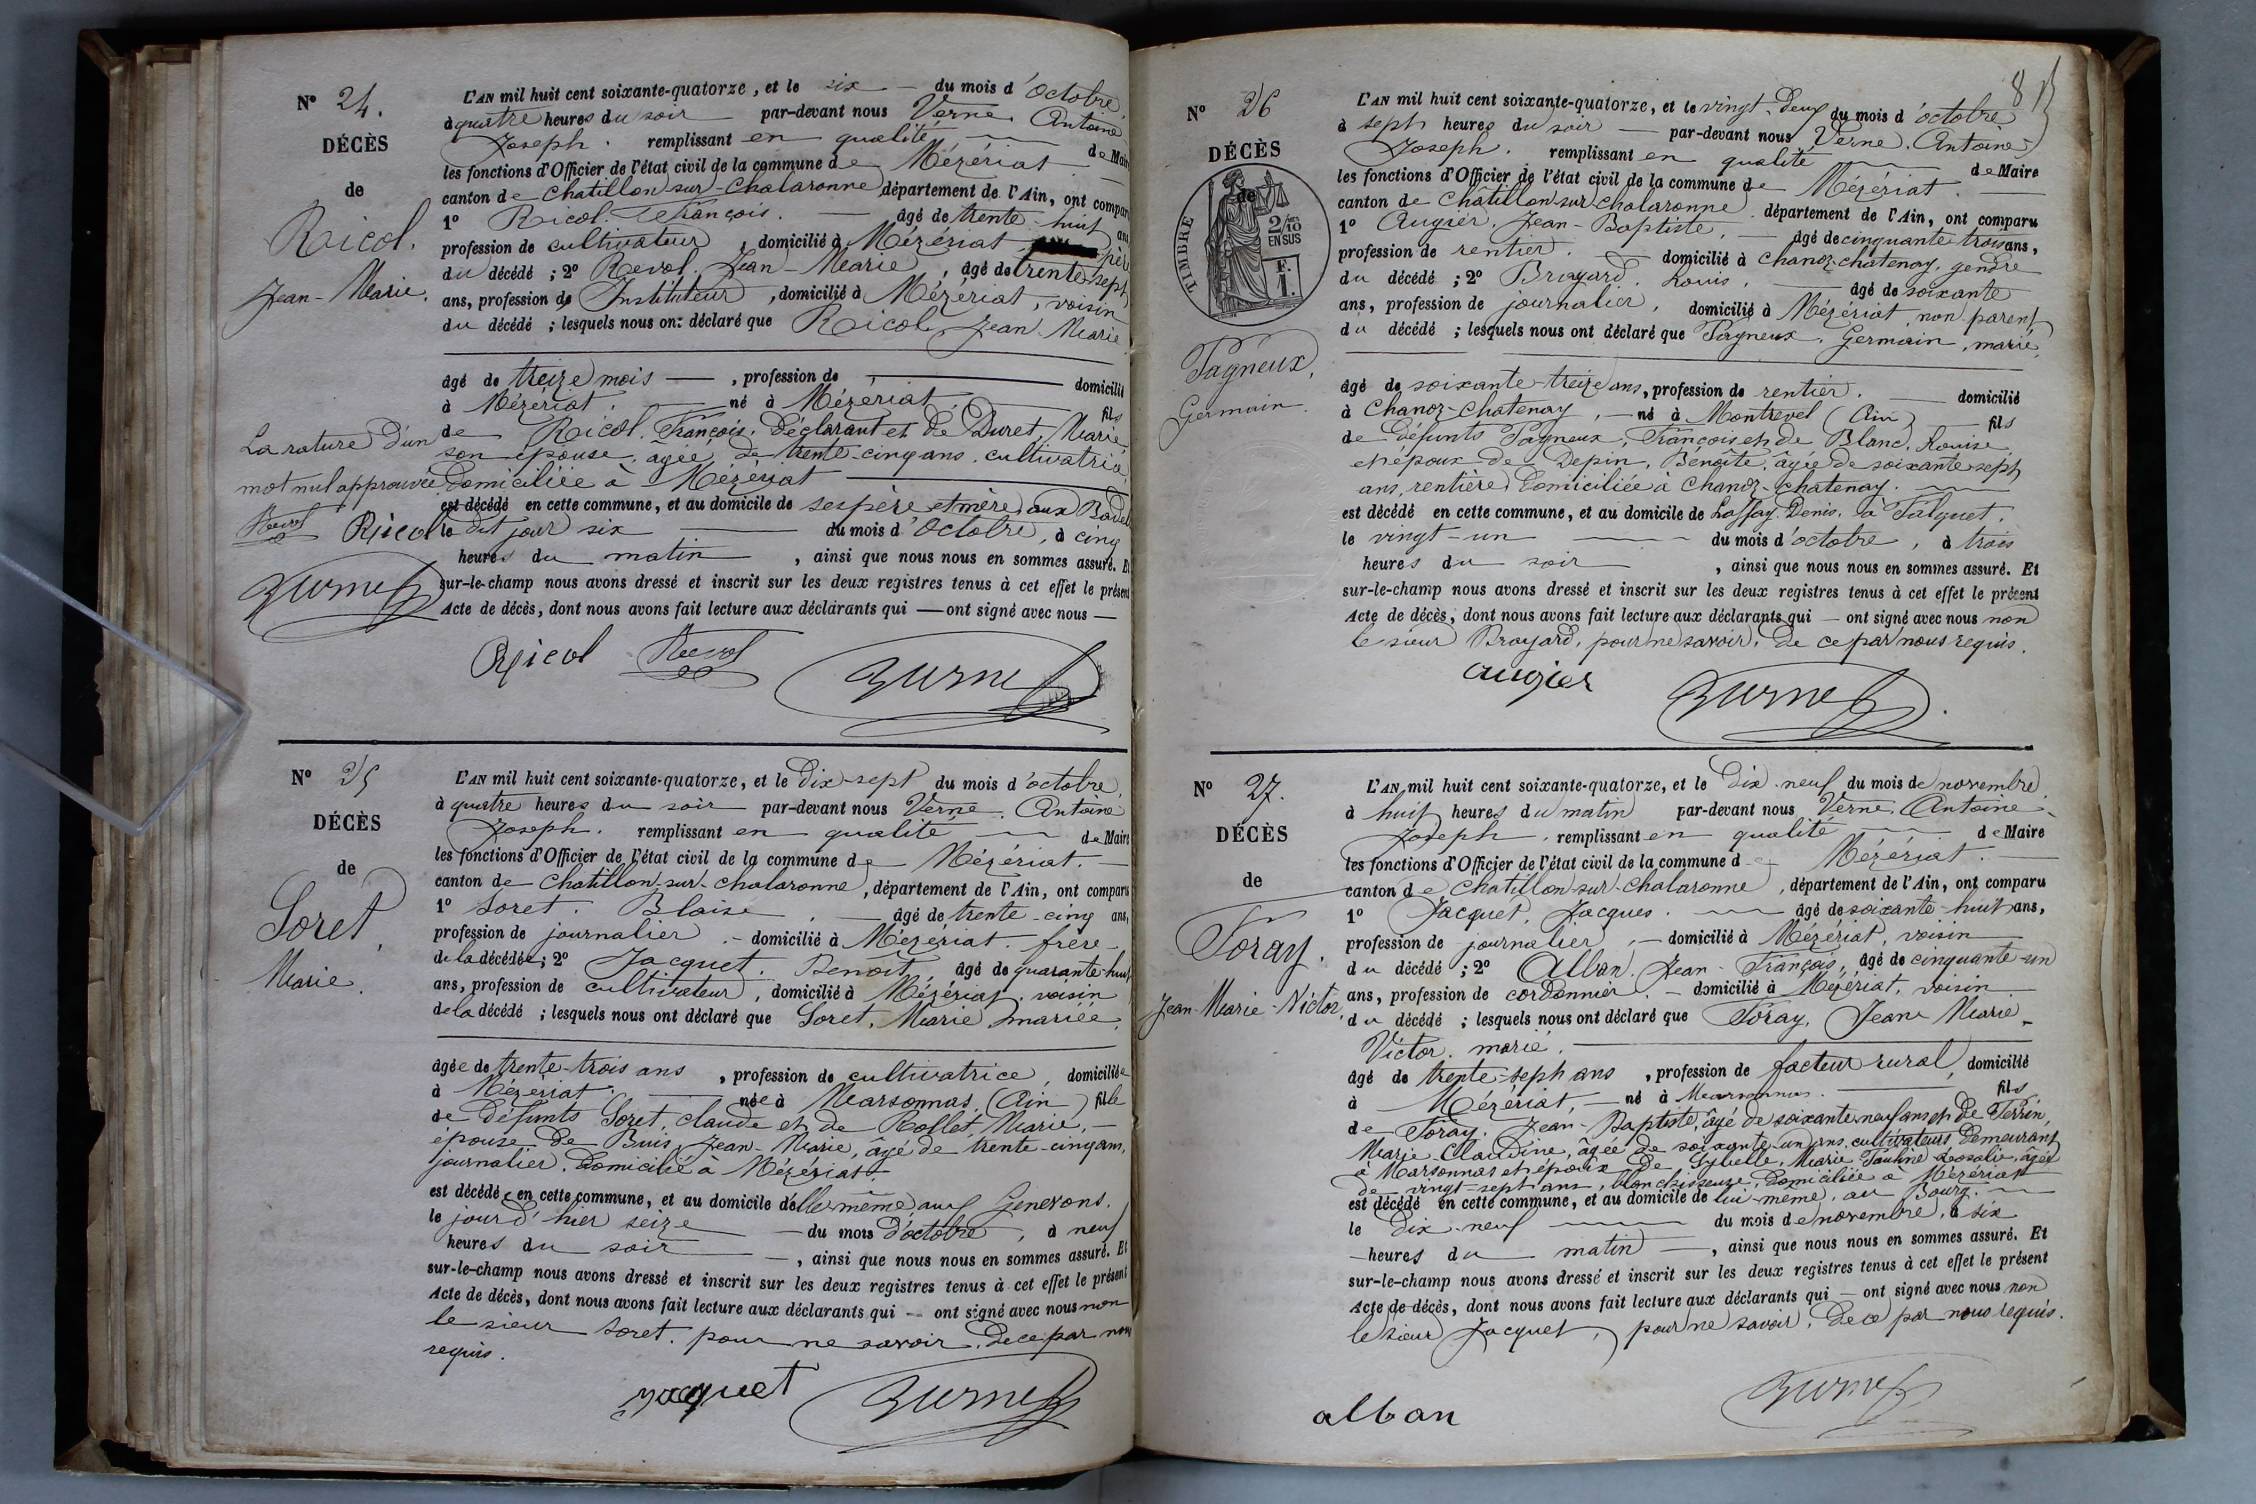 N° 24.
DÉCÈS
de
Ricol.
Jean-Marie.
L'AN mil huit cent soixante-quatorze, et le six — du mois d'Octobre,
à quatre heures du soir — par-devant nous Verne, Antoine
Joseph. remplissant en qualité — de Maire
les fonctions d'Officier de l'état civil de la commune de Mézériat —
canton de Chatillon-sur-Chalaronne département de l'Ain, ont comparu
1° Ricol. François. — âgé de trente-huit ans
profession de cultivateur, domicilié à Mézériat père
du décédé ; 2° Revol. Jean-Marie, âgé de trente-sept
ans, profession de Instituteur, domicilié à Mézériat, voisin
du décédé ; lesquels nous ont déclaré que Ricol, Jean-Marie
âgé de treize mois —, profession de — domicilié
à Mézériat — né à Mézériat — fils
de Ricol. François. Déclarant et de Duret, Marie
son épouse, agée de trente-cinq ans. cultivatrice,
domiciliée à Mézériat —
est décédé en cette commune, et au domicile de ses père et mère, aux
le dit jour six — du mois d'Octobre, à cinq
heures du matin, ainsi que nous nous en sommes assuré. Et
sur-le-champ nous avons dressé et inscrit sur les deux registres tenus à cet effet le présent
Acte de décès, dont nous avons fait lecture aux déclarants qui — ont signé avec nous —
La rature d'un
mot nul approuvée
Revol Ricol
Verne
Ricol Revol Verne
N° 25
DÉCÈS
de
Soret,
Marie.
L'AN mil huit cent soixante-quatorze, et le Dix-sept du mois d'octobre,
à quatre heures du soir — par-devant nous Verne, Antoine
Joseph. remplissant en qualité — de Maire
les fonctions d'Officier de l'état civil de la commune de Mézériat. —
canton de Chatillon-sur-Chalaronne, département de l'Ain, ont comparu
1° Soret. Blaise. — âgé de trente-cinq ans,
profession de journalier. — domicilié à Mézériat. frère
de la décédée ; 2° Jacquet. Benoît, âgé de quarante-huit
ans, profession de cultivateur, domicilié à Mézériat, voisin
de la décédé ; lesquels nous ont déclaré que Soret, Marie, mariée,
âgée de trente-trois ans, profession de cultivatrice, domiciliée
à Mézériat. — née à Marsonnas, (Ain) fille
de Défunts Soret, Claude et de Rollet Marie, —
épouse de Buis, Jean-Marie, âgé de trente-cinq ans,
journalier. Domicilié à Mézériat. —
est décédée en cette commune, et au domicile d'elle-même aux Generons.
le jour d'hier seize — du mois d'octobre, à neuf
heures du soir —, ainsi que nous nous en sommes assuré. Et
sur-le-champ nous avons dressé et inscrit sur les deux registres tenus à cet effet le présent
Acte de décès, dont nous avons fait lecture aux déclarants qui — ont signé avec nous non
le sieur Soret. pour ne savoir, De ce par nous
requis.
jacquet Verne
N° 26
DÉCÈS
de
TIMBRE
2/10
EN SUS
F.
1.
Pagneux,
Germain.
L'AN mil huit cent soixante-quatorze, et le vingt-Deux du mois d'octobre
à sept heures du soir — par-devant nous Verne, Antoine
Joseph. remplissant en qualité — de Maire
les fonctions d'Officier de l'état civil de la commune de Mézériat. —
canton de Châtillon-sur-Chalaronne. département de l'Ain, ont comparu
1° Augier. Jean-Baptiste. — âgé de cinquante-trois ans,
profession de rentier. — domicilié à Chanoz-Chatenay, gendre
du décédé ; 2° Broyard. Louis. — âgé de soixante
ans, profession de journalier. domicilié à Mézériat, non parent
du décédé ; lesquels nous ont déclaré que Pagneux, Germain, marié,
âgé de soixante-treize ans, profession de rentier. — domicilié
à Chanoz-Chatenay. — né à Montrevel (Ain) — fils
de Défunts Pagneux, François et de Blanc, Louise,
et époux de Depin, Bénoîte, âgée de soixante-sept
ans, rentière, domiciliée à Chanoz-Chatenay. —
est décédé en cette commune, et au domicile de Denis. à
le vingt-un — du mois d'octobre, à trois
heures du soir —, ainsi que nous nous en sommes assuré. Et
sur-le-champ nous avons dressé et inscrit sur les deux registres tenus à cet effet le présent
Acte de décès, dont nous avons fait lecture aux déclarants qui — ont signé avec nous non
le sieur Broyard, pour ne savoir, De ce par nous requis.
augier Verne
N° 27.
DÉCÈS
de
Foray.
Jean-Marie-Victor,
L'AN mil huit cent soixante-quatorze, et le Dix-neuf du mois de novembre
à huit heures du matin par-devant nous Verne, Antoine
Joseph. remplissant en qualité — de Maire
les fonctions d'Officier de l'état civil de la commune de Mézériat.
canton de Chatillon-sur-Chalaronne, département de l'Ain, ont comparu
1° Jacquet. Jacques. — âgé de soixante-huit ans,
profession de journalier — domicilié à Mézériat, voisin
du décédé ; 2° Alban. Jean-François, âgé de cinquante-un
ans, profession de cordonnier. — domicilié à Mézériat, voisin
du décédé ; lesquels nous ont déclaré que Foray, Jean Marie
Victor. marié. —
âgé de trente-sept ans, profession de facteur rural, domicilié
à Mézériat, — né à Marsonnas. — fils
de Foray. Jean-Baptiste, âgé de soixante-neuf ans et de Perrin,
Marie-Claudine, âgée de soixante-un ans, cultivateurs demeurant
à Marsonnas et époux de Marie Pauline Rosalie, âgée
de vingt-sept ans, blanchisseuse, domiciliée à Mézériat
est décédé en cette commune, et au domicile de lui-même, au Bourg. —
le Dix-neuf — du mois de novembre, à six
— heures du matin —, ainsi que nous nous en sommes assuré. Et
sur-le-champ nous avons dressé et inscrit sur les deux registres tenus à cet effet le présent
Acte de décès, dont nous avons fait lecture aux déclarants qui — ont signé avec nous non
le sieur Jacquet, pour ne savoir, De ce par nous requis.
alban Verne